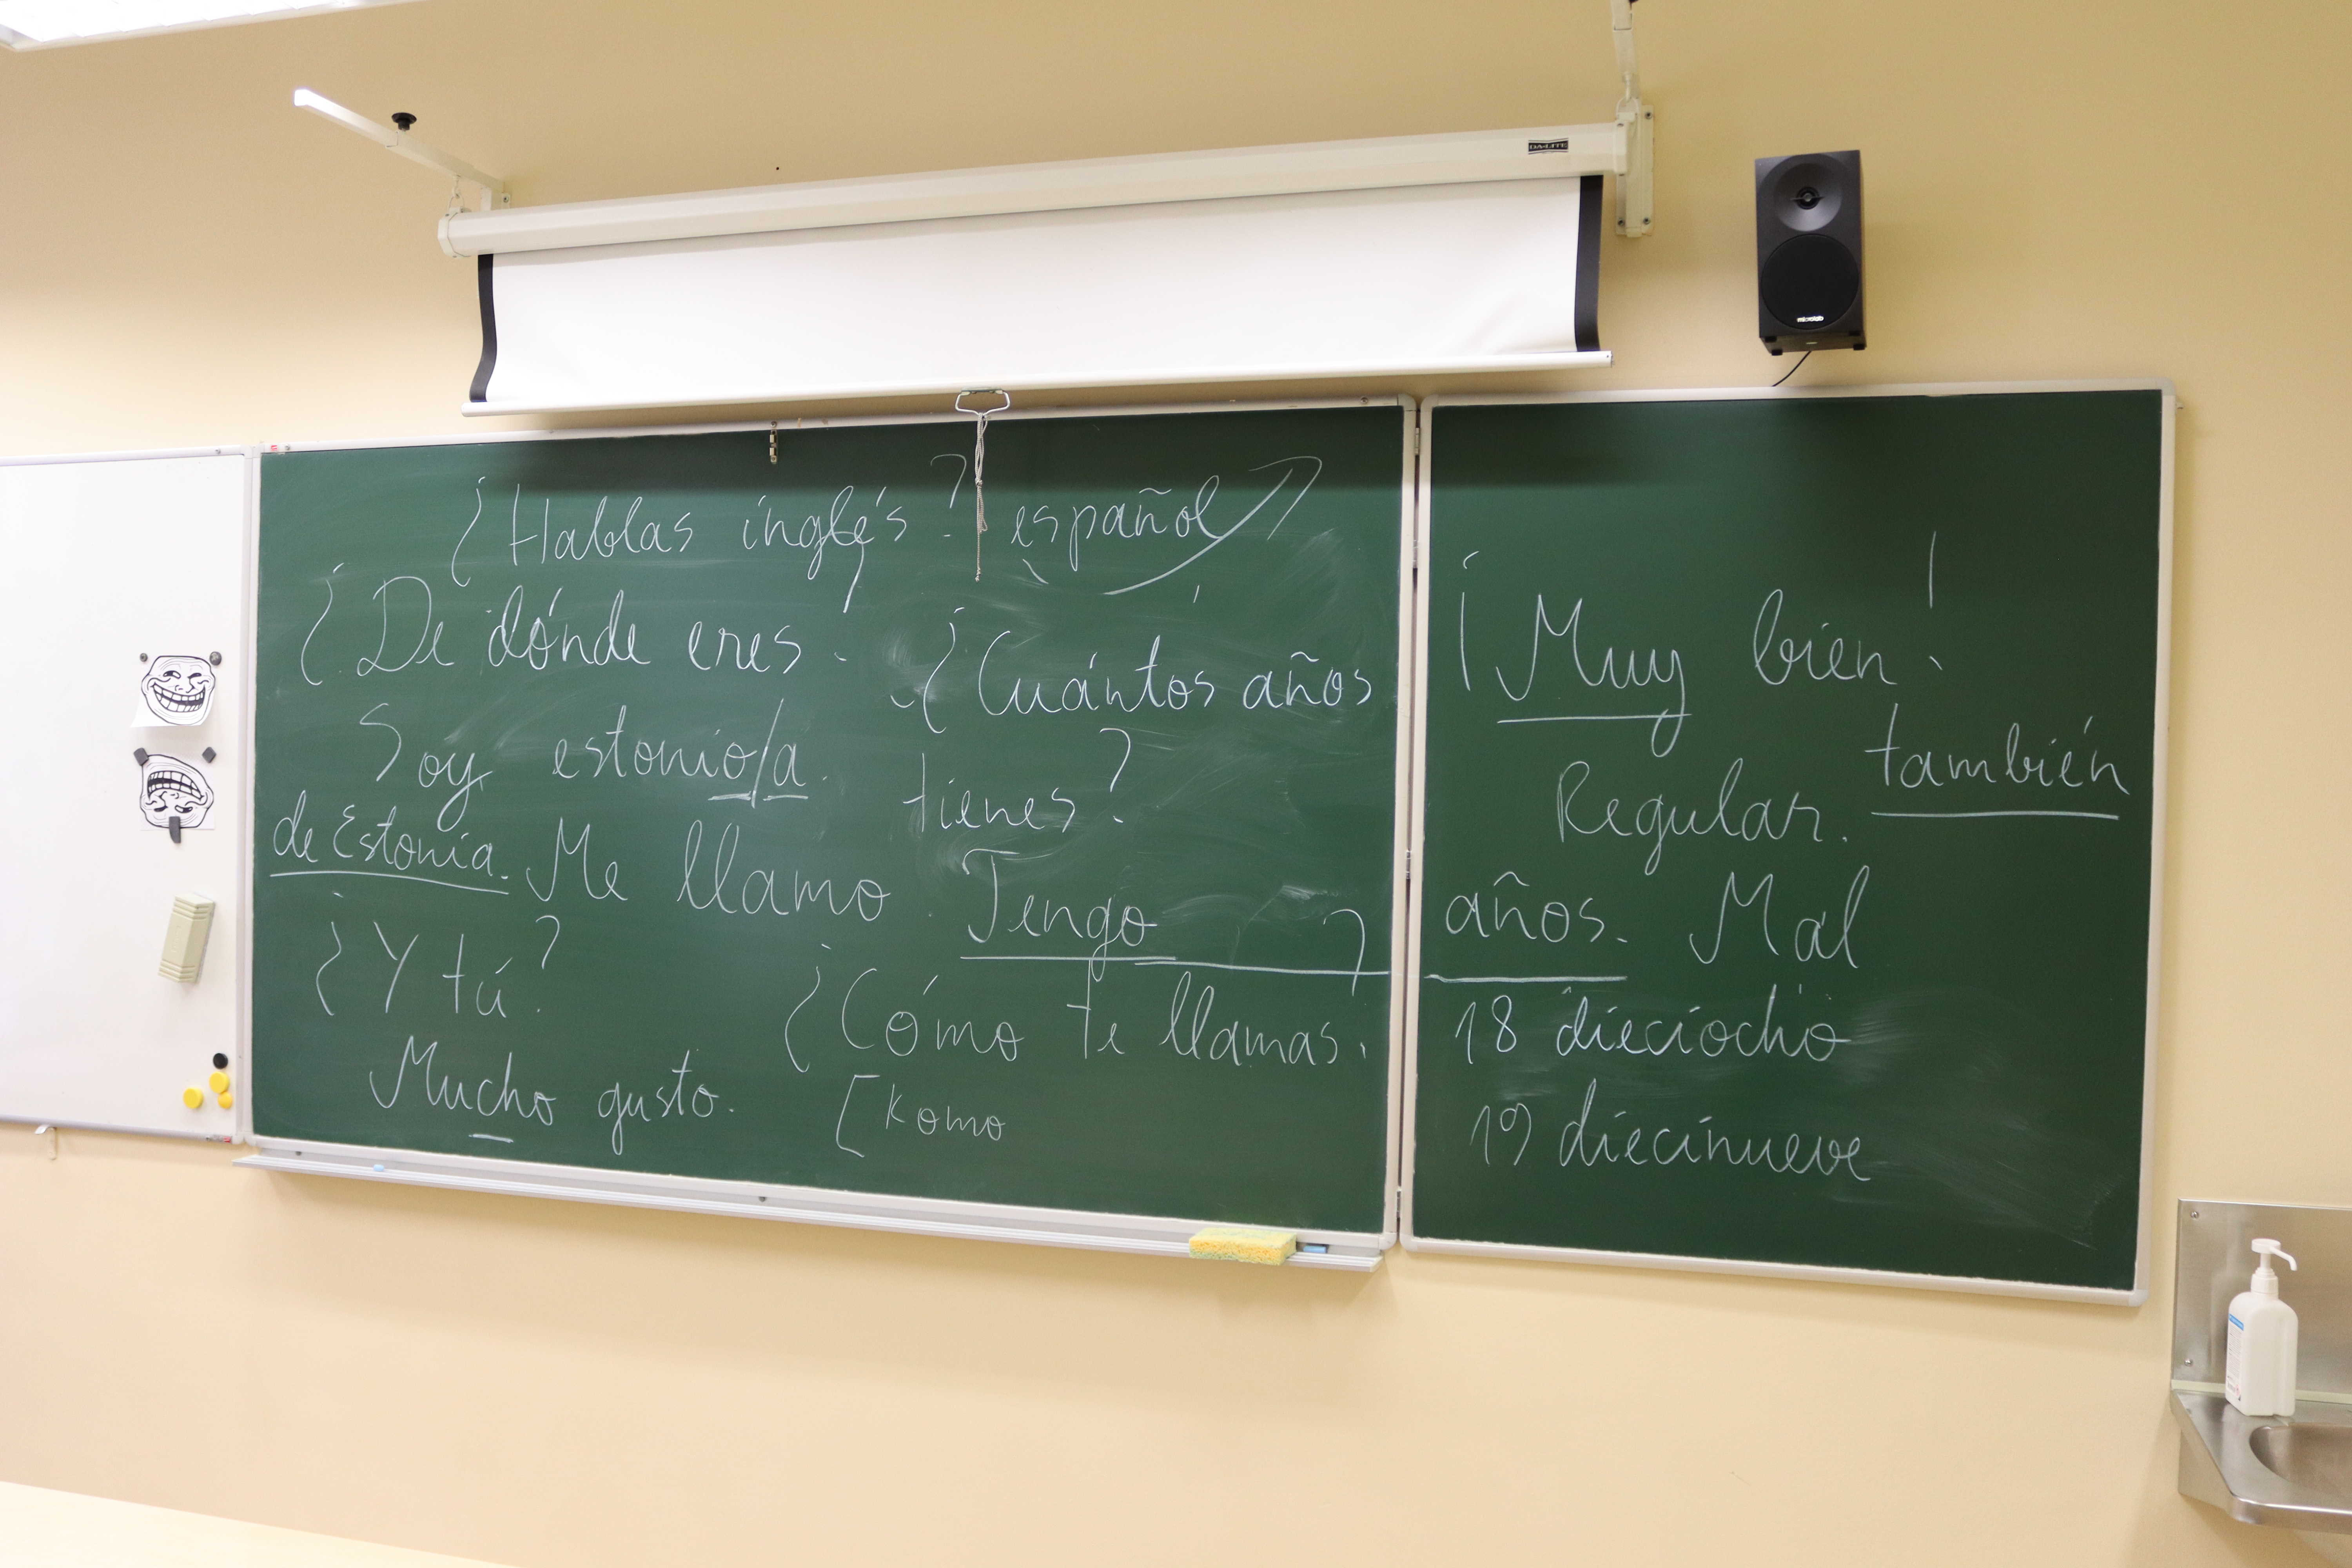 DA-LITE
microlab
¿Hablas inglés? español
¿De dónde eres?
¿Cuántos años
tienes?
Soy estonio/a.
de Estonia. Me llamo
Tengo años.
¿Y tú?
¿Cómo te llamas?
Mucho gusto.
[komo
¡Muy bien!
también
Regular.
Mal
18 dieciocho
19 diecinueve